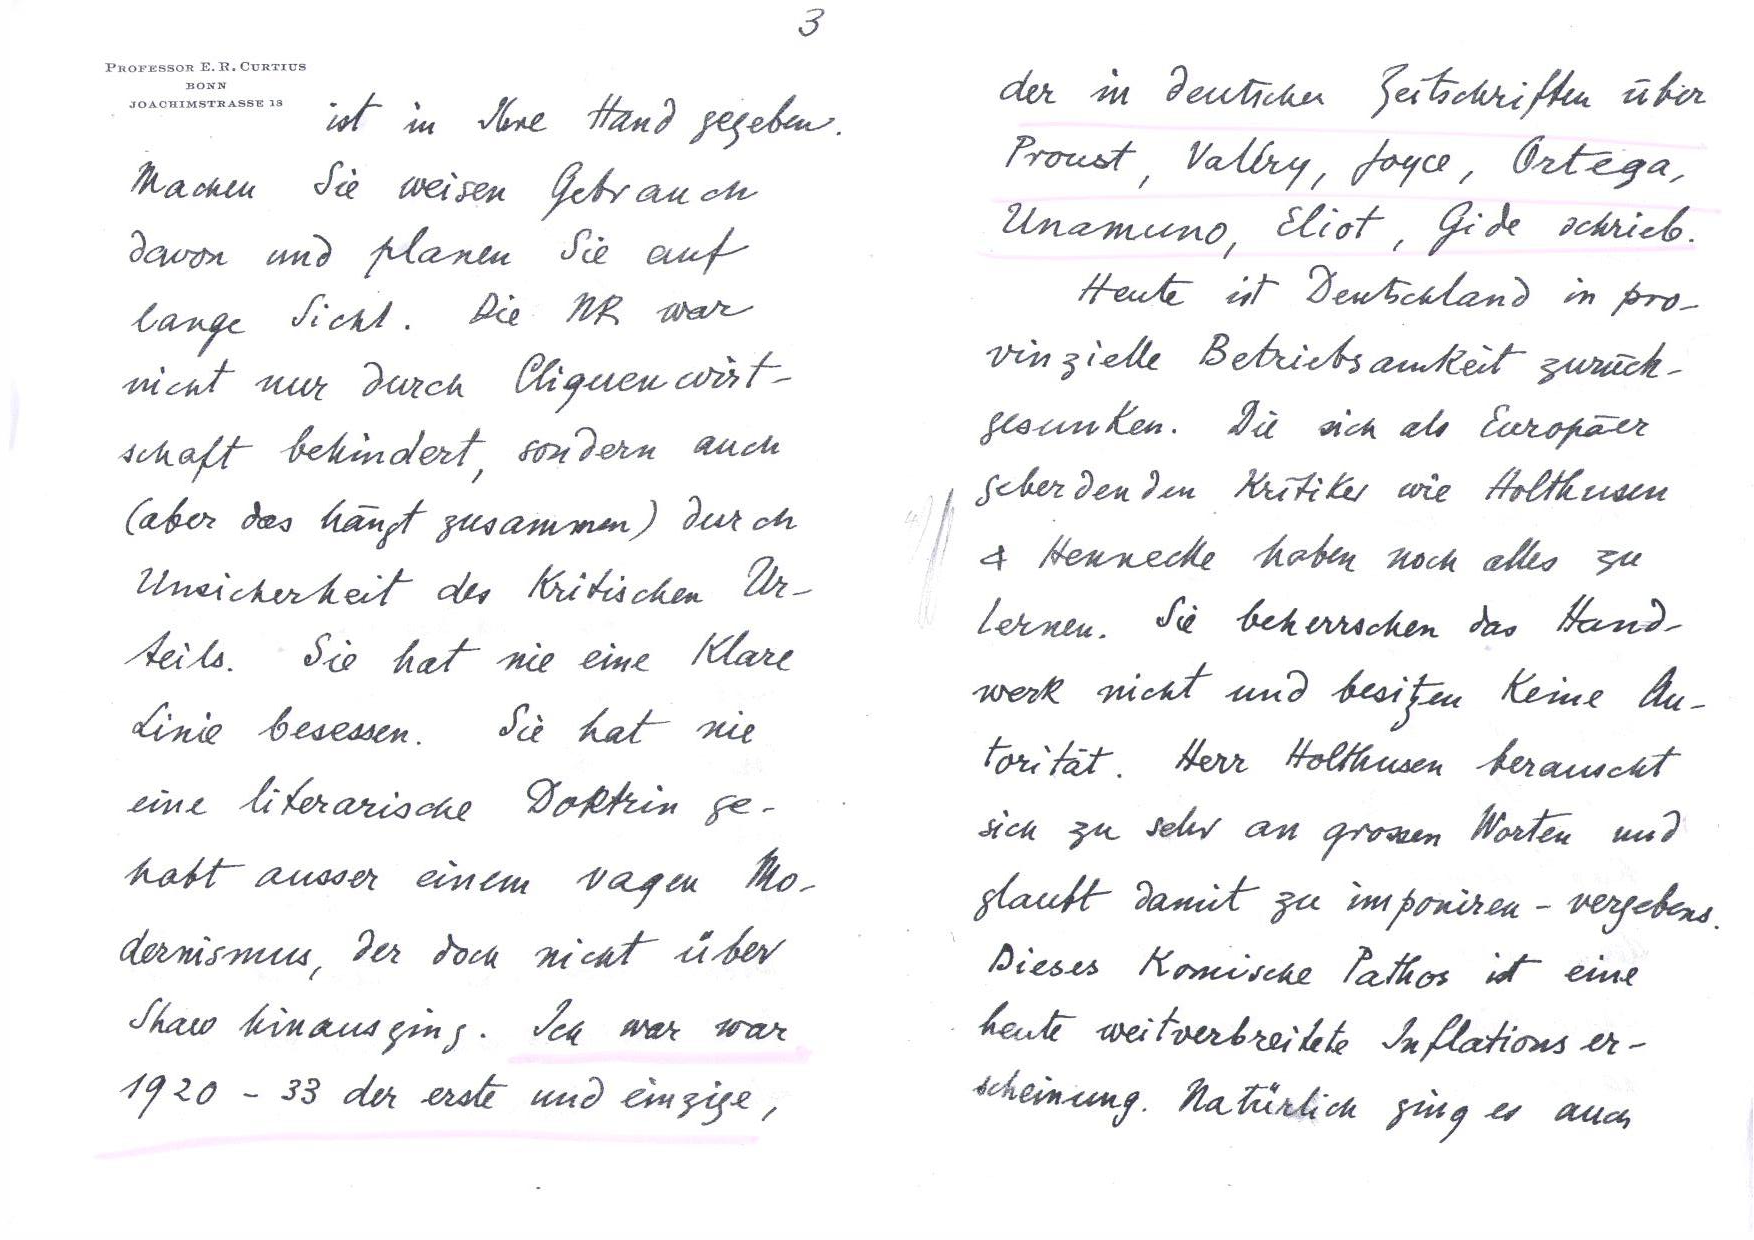 3
PROFESSOR E. R. CURTIUS
BONN
JOACHIMSTRASSE 18
ist in Ihre Hand gegeben.
Machen Sie weisen Gebrauch
davon und planen Sie auf
lange Sicht. Die NR war
nicht nur durch Cliquenwirt-
schaft behindert, sondern auch
(aber das hängt zusammen) durch
Unsicherheit des kritischen Ur-
teils. Sie hat nie eine klare
Linie besessen. Sie hat nie
eine literarische Doktrin ge-
habt ausser einem vagen Mo-
dernismus, der doch nicht über
Shaw hinausging. Ich war war
1920 - 33 der erste und einzige,
der in deutschen Zeitschriften über
Proust, Valéry, Joyce, Ortega,
Unamuno, Eliot, Gide schrieb.
Heute ist Deutschland in pro-
vinzielle Betriebsamkeit zurück-
gesunken. Die sich als Europäer
geberdenden Kritiker wie Holthusen
& Hennecke haben noch alles zu
lernen. Sie beherrschen das Hand-
werk nicht und besitzen keine Au-
torität. Herr Holthusen berauscht
sich zu sehr an grossen Worten und
glaubt damit zu imponiren - vergebens.
Dieses komische Pathos ist eine
heute weitverbreitete Inflationser-
scheinung. Natürlich ging es auch